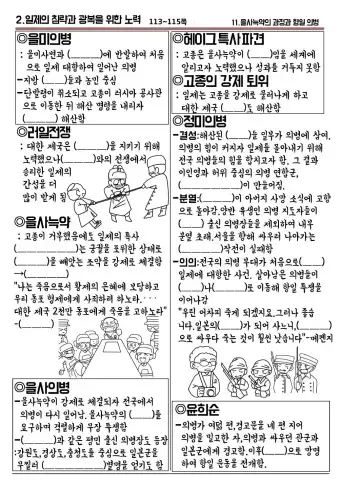 2.일제의 침략과 광복을 위한 노력 113~115쪽 11.을사늑약의 과정과 항일 의병
◎을미의병
: 을미사변과 (        )에 반발하여 처음
으로 일제 대항하여 일어난 의병
-지방 (     )들과 농민 중심
-단발령이 취소되고 고종이 러시아 공사관
으로 이동한 뒤 해산 명령을 내리자
(        ) 해산함
◎러일전쟁
: 대한 제국은(        )을 지키기 위해
노력했으나(        )와의 전쟁에서
승리한 일제의
간섭을 더
많이 받게 됨
◎을사늑약
: 고종이 거부했음에도 일제의 특사
(            )는 궁궐을 포위한 상태로
(        )을 빼앗는 조약을 강제로 체결함
→(        )
"나는 죽음으로서 황제의 은혜에 보답하고
우리 동포 형제에게 사죄하려 하노라.···
대한 제국 2천만 동포에게 죽음을 고하노라"
-(        )
◎을사의병
-을사늑약이 강제로 체결되자 전국에서
의병이 다시 일어남. 을사늑약의 (     )를
요구하며 격렬하게 무장 투쟁함
-(        )과 같은 평민 출신 의병장도 등장
:강원도,경상도,충청도를 중심으로 일본군을
무찔러 (            )별명을 얻기도 함
◎헤이그 특사 파견
: 고종은 을사늑약이 (     )임을 세계에
알리고자 노력했으나 성과를 거두지 못함
◎고종의 강제 퇴위
: 일제는 고종을 강제로 물러나게 하고
대한 제국 (     )도 해산함
◎정미의병
-결성:해산된 (     )들 일부가 의병에 참여.
의병의 힘이 커지자 일제를 몰아내기 위해
전국 의병들의 힘을 합치고자 함. 그 결과
이인영과 허위 중심의 의병 연합군,
(            )이 만들어짐.
-분열:(        )이 아버지 사망 소식에 고향
으로 돌아감.양반 유생인 의병 지도자들이
(     ) 출신 의병장들을 제외하여 내부
분열 초래.서울을 향해 싸우러 나아가는
(            )작전이 실패함
-의의:전국의 의병 부대가 처음으로(     )
일제에 대항한 사건. 살아남은 의병들이
(     )나(     )로 이동해 항일 투쟁을
이어나감
"우린 어차피 죽게 되겠지요.그러나 좋습
니다.일본의(     )가 되어 사느니,(        )
으로 싸우다 죽는 것이 훨씬 낫습니다"-매켄지
◎윤희순
-의병가 여덟 편,경고문을 네 편 지어
의병을 밀고한 자,의병과 싸우던 관군과
일본군에게 경고함.이후(     )으로 망명
하여 항일 운동을 전개함.